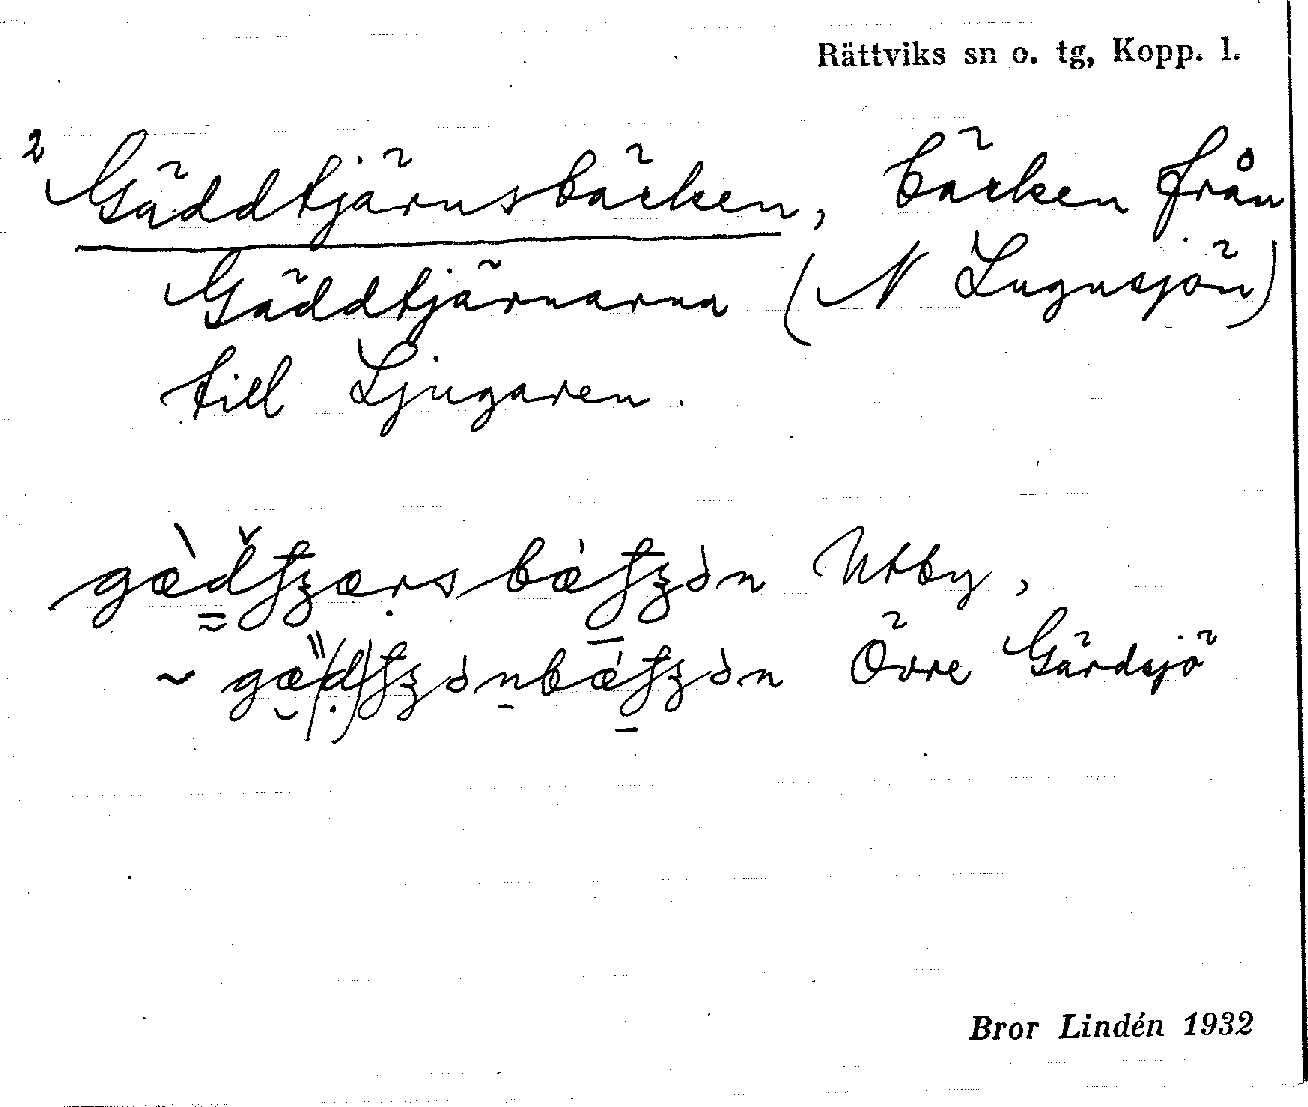 Rättviks sn o. tg, Kopp. l.
2 Gäddtjärnsbäcken, bäcken från
Gäddtjärnarna (N Lugnsjön)
till Ljugaren.
Utby,
~ Övre Gärdsjö
Bror Lindén 1932